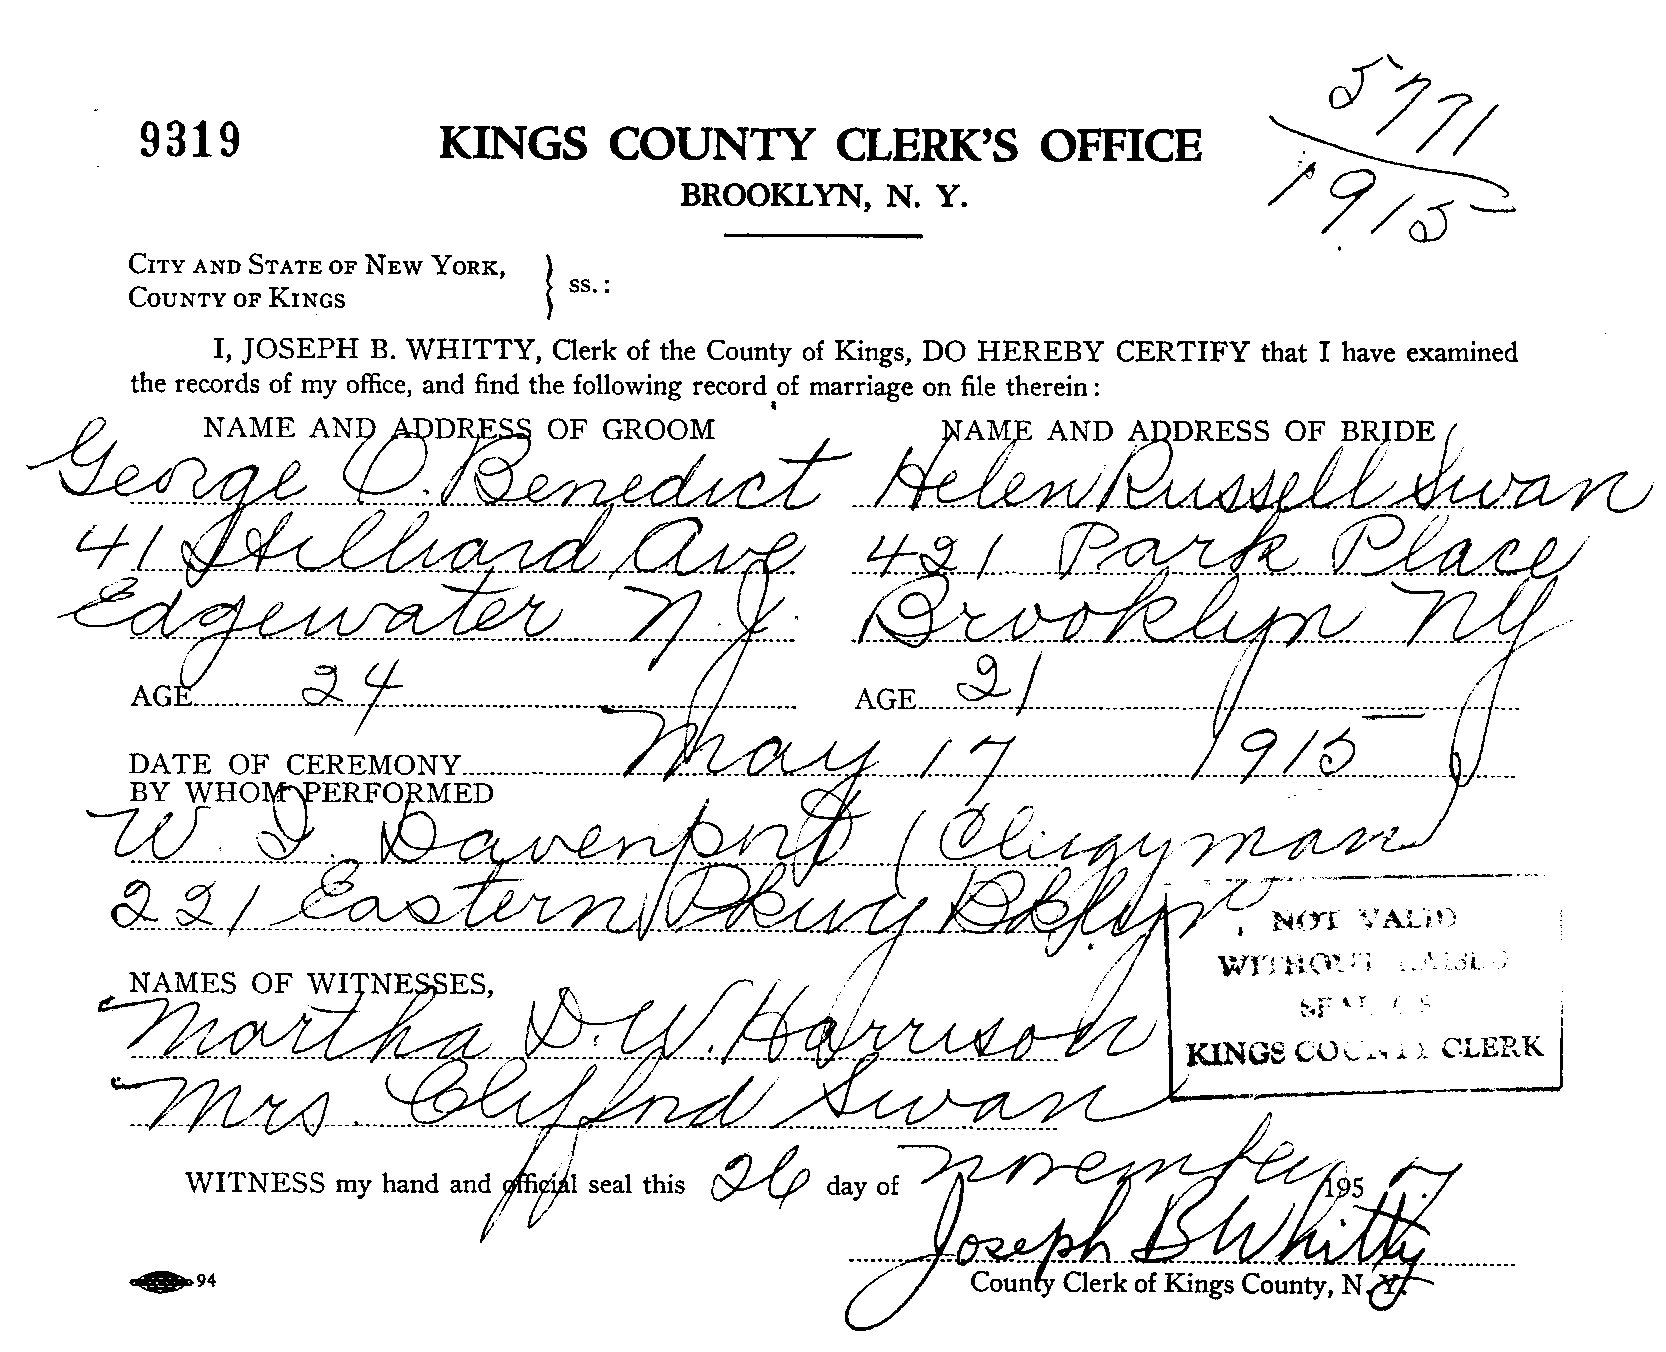 5771
9319 KINGS COUNTY CLERK'S OFFICE
1915
BROOKLYN, N. Y.
CITY AND STATE OF NEW YORK,
COUNTY OF KINGS } ss.:
I, JOSEPH B. WHITTY, Clerk of the County of Kings, DO HEREBY CERTIFY that I have examined
the records of my office, and find the following record of marriage on file therein:
NAME AND ADDRESS OF GROOM NAME AND ADDRESS OF BRIDE
George O. Benedict Helen Russell Swan
41 Hilliard Ave 421 Park Place
Edgewater N.J. Brooklyn NY
AGE 24 AGE 21
DATE OF CEREMONY May 17 1915
BY WHOM PERFORMED
W. I. Davenport (Clergyman)
221 Eastern Pkwy Bklyn
NOT VALID
WITHOUT RAISED
SEAL OF
KINGS COUNTY CLERK
NAMES OF WITNESSES,
Martha D. W. Harrison
Mrs. Clifford Swan
WITNESS my hand and official seal this 26 day of November 1957
Joseph B Whitty
94 County Clerk of Kings County, N. Y.